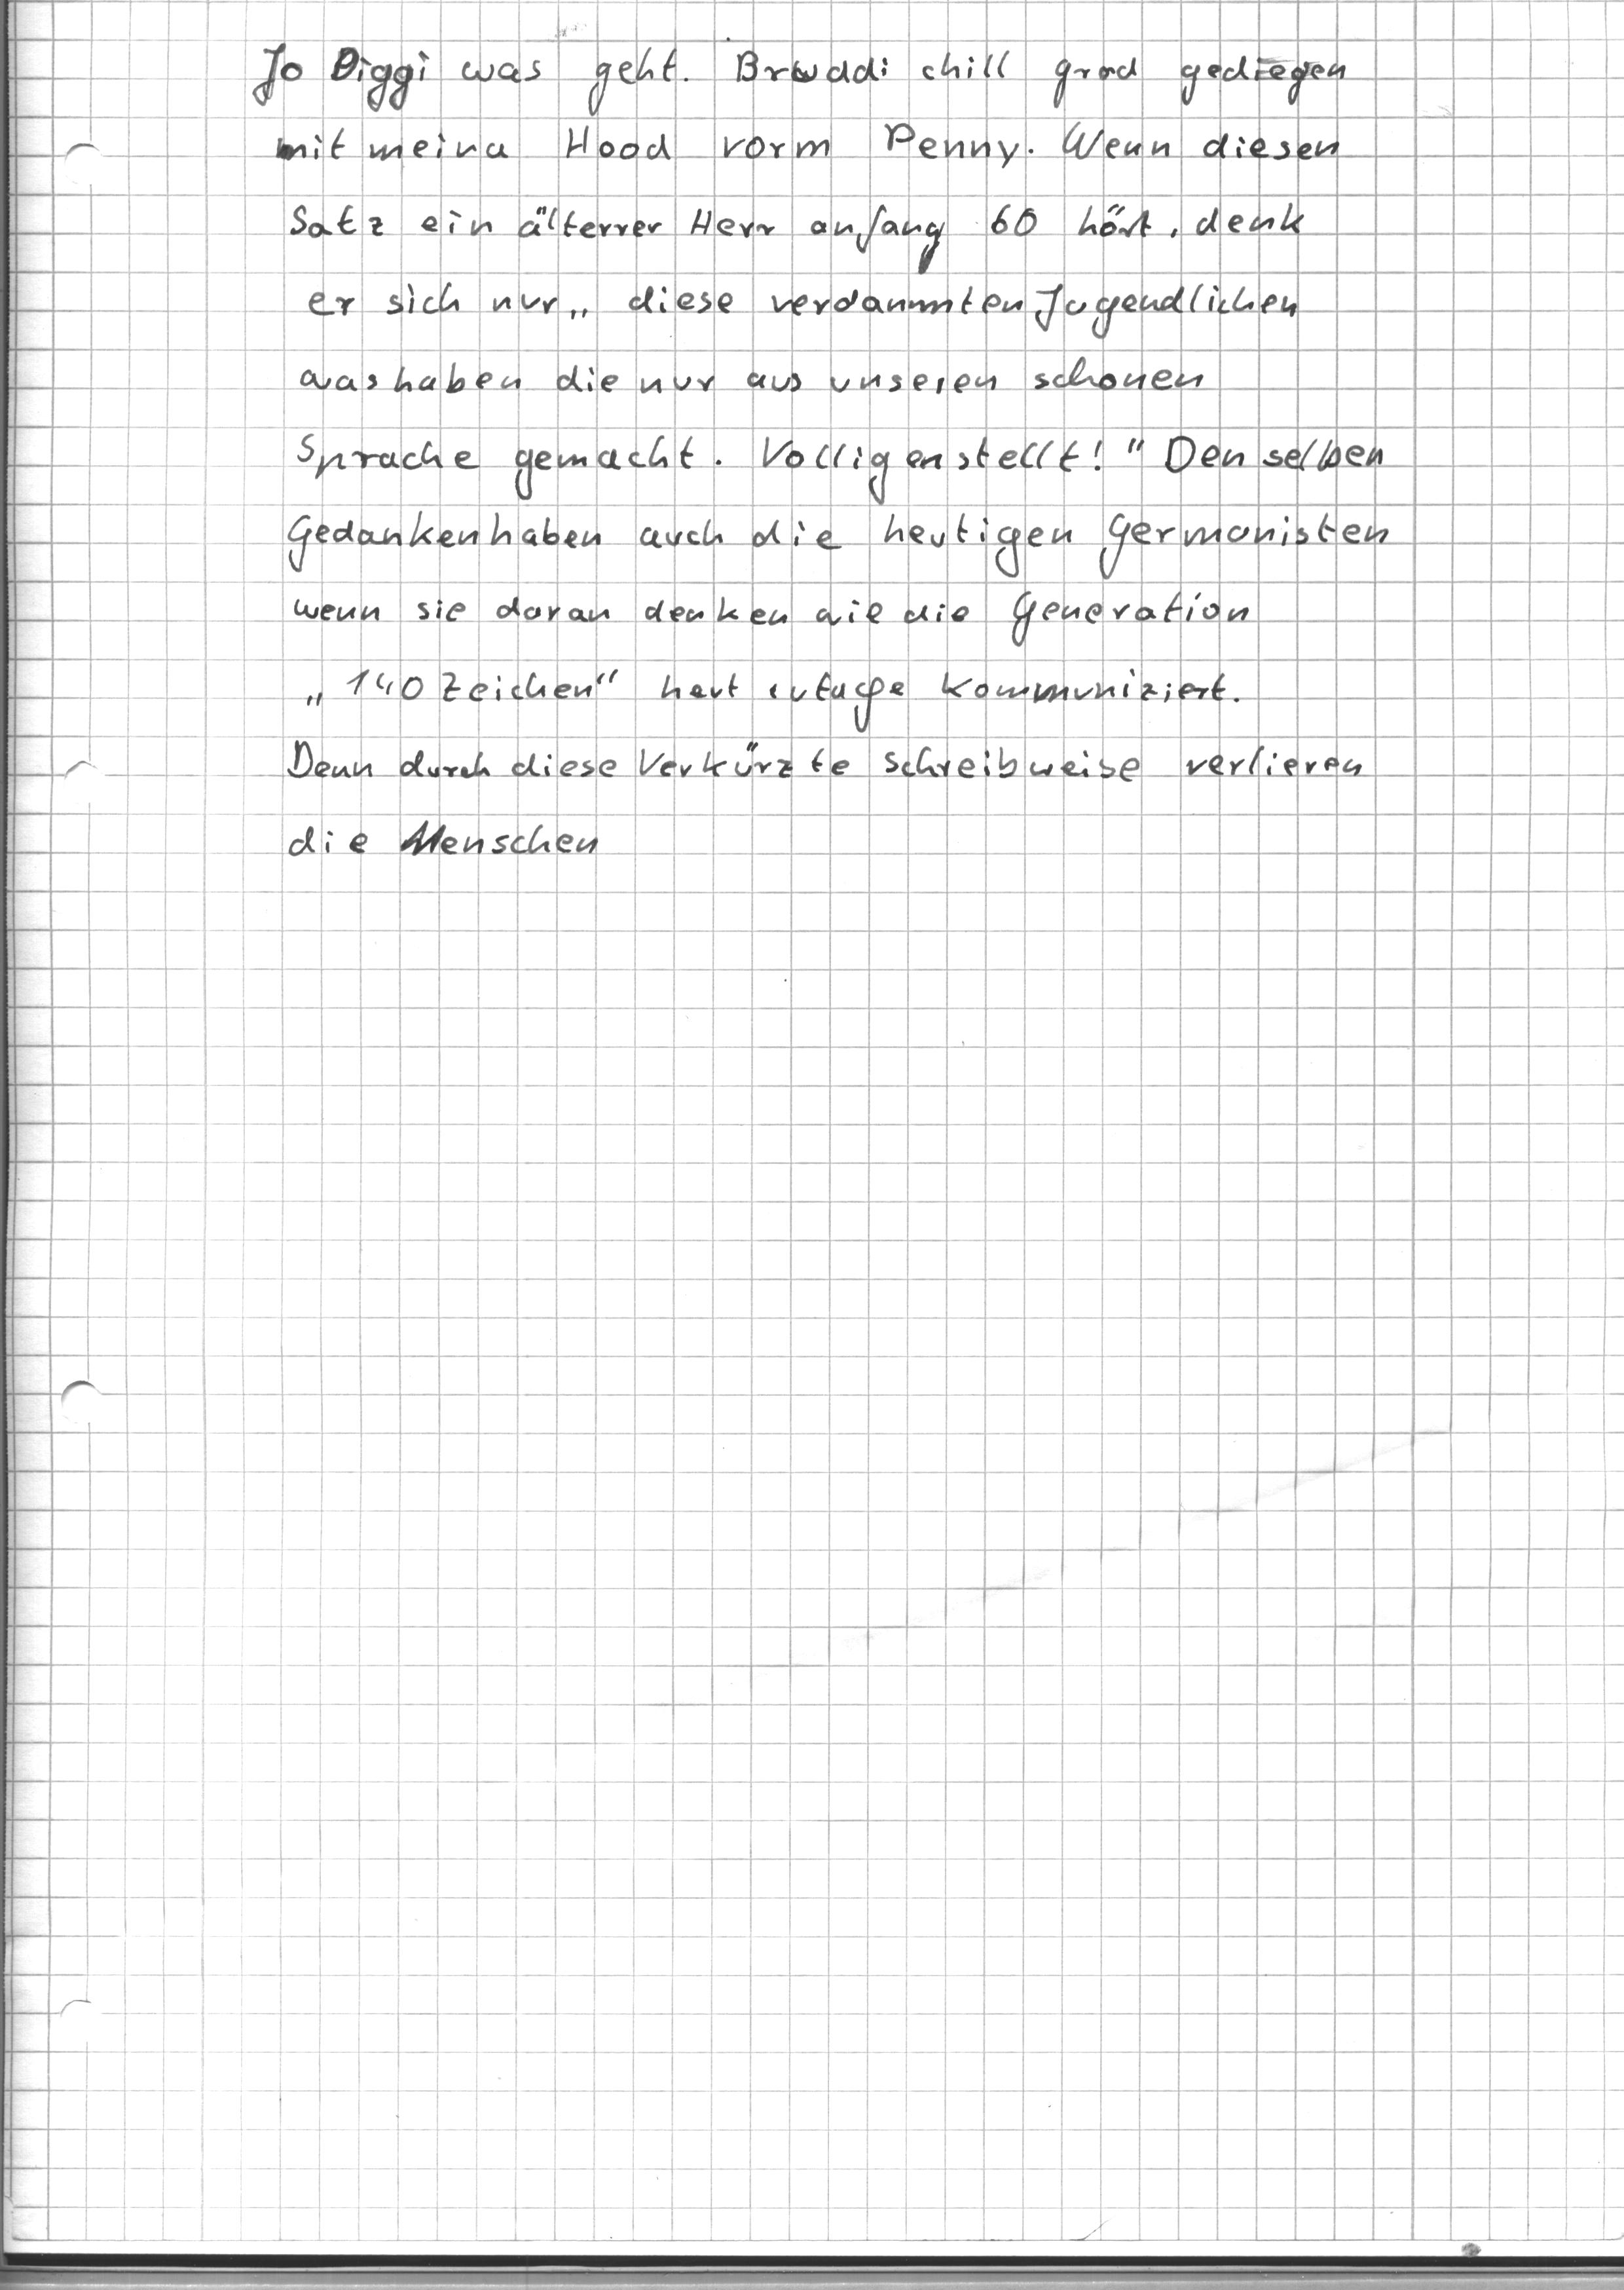 Jo Diggi was geht. Bruddi chill grad gediegen
mit meina Hood vorm Penny. Wenn diesen
Satz ein älterrer Herr anfang 60 hört, denk
er sich nur „ diese verdammten Jugendlichen
was haben die nur aus unseren schonen
Sprache gemacht. Vollig enstellt!" Den selben
Gedanken haben auch die heutigen Germanisten
wenn sie daran denken wie die Generation
„140 Zeichen" kommuniziert.
Denn durch diese Verkürzte Schreibweise verlieren
die Menschen